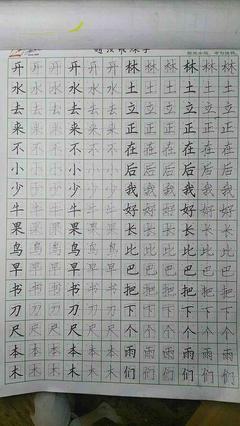 开开开开开开林林林林林林
水水水水水水土土土土土土
去去去去去去立立立立立立
来来来来来来正正正正正正
不不不不不不在在在在在在
小小小小小小后后后后后后
少少少少少少我我我我我我
牛牛牛牛牛牛好好好好好好
果果果果果果长长长长长长
鸟鸟鸟鸟鸟鸟比比比比比比
早早早早早早巴巴巴巴巴巴
书书书书书书把把把把把把
刀刀刀刀刀刀下下下下下下
尺尺尺尺尺尺个个个个个个
本本本本本本雨雨雨雨雨雨
木木木木木木们们们们们们